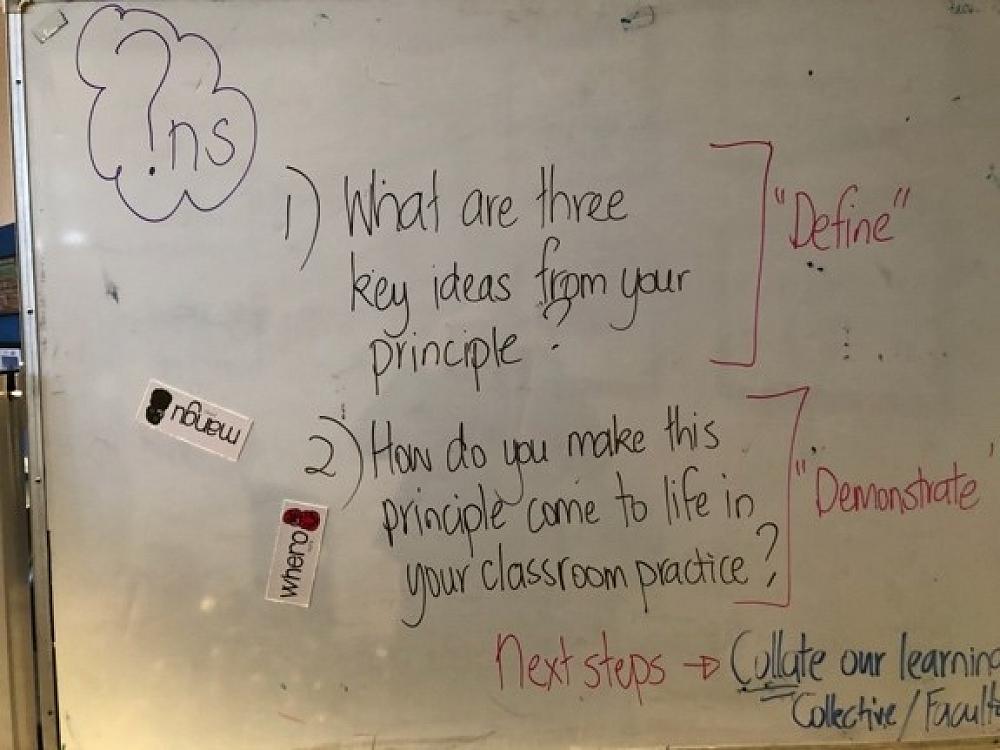 ?ns
1) What are three
key ideas from your
principle?
"Define"
mangu
2) How do you make this
principle come to life in
your classroom practice?
"Demonstrate
whero
Next steps → Collate our learning
Collective/